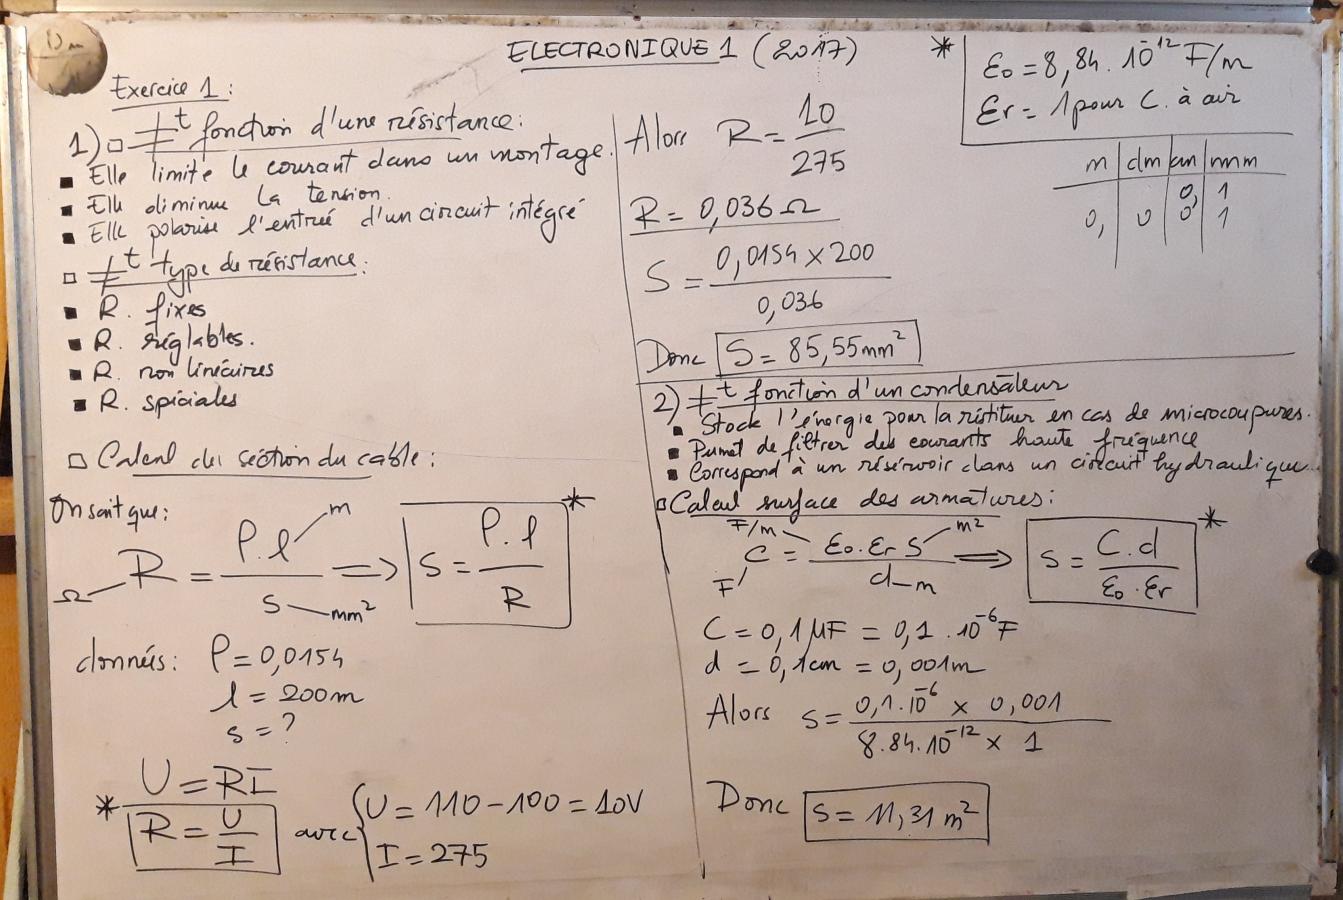 ELECTRONIQUE 1 (2017)
Exercice 1 :
1) □ ≠t fonction d'une résistance :
▪ Elle limite le courant dans un montage.
▪ Elle diminue la tension.
▪ Elle polarise l'entrée d'un circuit intégré
□ ≠t type de résistance :
▪ R. fixes
▪ R. réglables.
▪ R. non linéaires
▪ R. spéciales
□ Calcul de section du cable :
On sait que :
Ω R = ρ.l m / s mm² ⇒ S = ρ.l / R *
données : ρ = 0,0154
l = 200m
s = ?
U = RI
* R = U / I avec { U = 110 - 100 = 10V
I = 275
Alors R = 10 / 275
R = 0,036 Ω
S = 0,0154 x 200 / 0,036
Donc S = 85,55mm²
* ε₀ = 8,84. 10⁻¹² F/m
εr = 1 pour C. à air
m | dm | cm | mm
0, 1
0, 0 0 1
2) ≠t fonction d'un condensateur
▪ Stock l'énergie pour la restituer en cas de microcoupures.
▪ Permet de filtrer des courants haute fréquence
▪ Correspond à un réservoir dans un circuit hydraulique
□ Calcul surface des armatures :
F C = F/m ε₀.εr S m² / d m ⇒ S = C.d / ε₀.εr *
C = 0,1 µF = 0,1 .10⁻⁶ F
d = 0,1cm = 0,001m
Alors S = 0,1.10⁻⁶ x 0,001 / 8.84.10⁻¹² x 1
Donc S = 11,31 m²